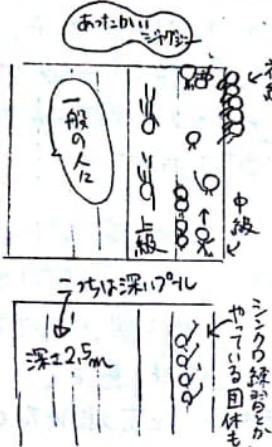 あったかい
ジャグジー
初級
一般の人に
上級
中級
こっちは深いプール
深さ2.5m
シンクロ練習とか
やっている団体も